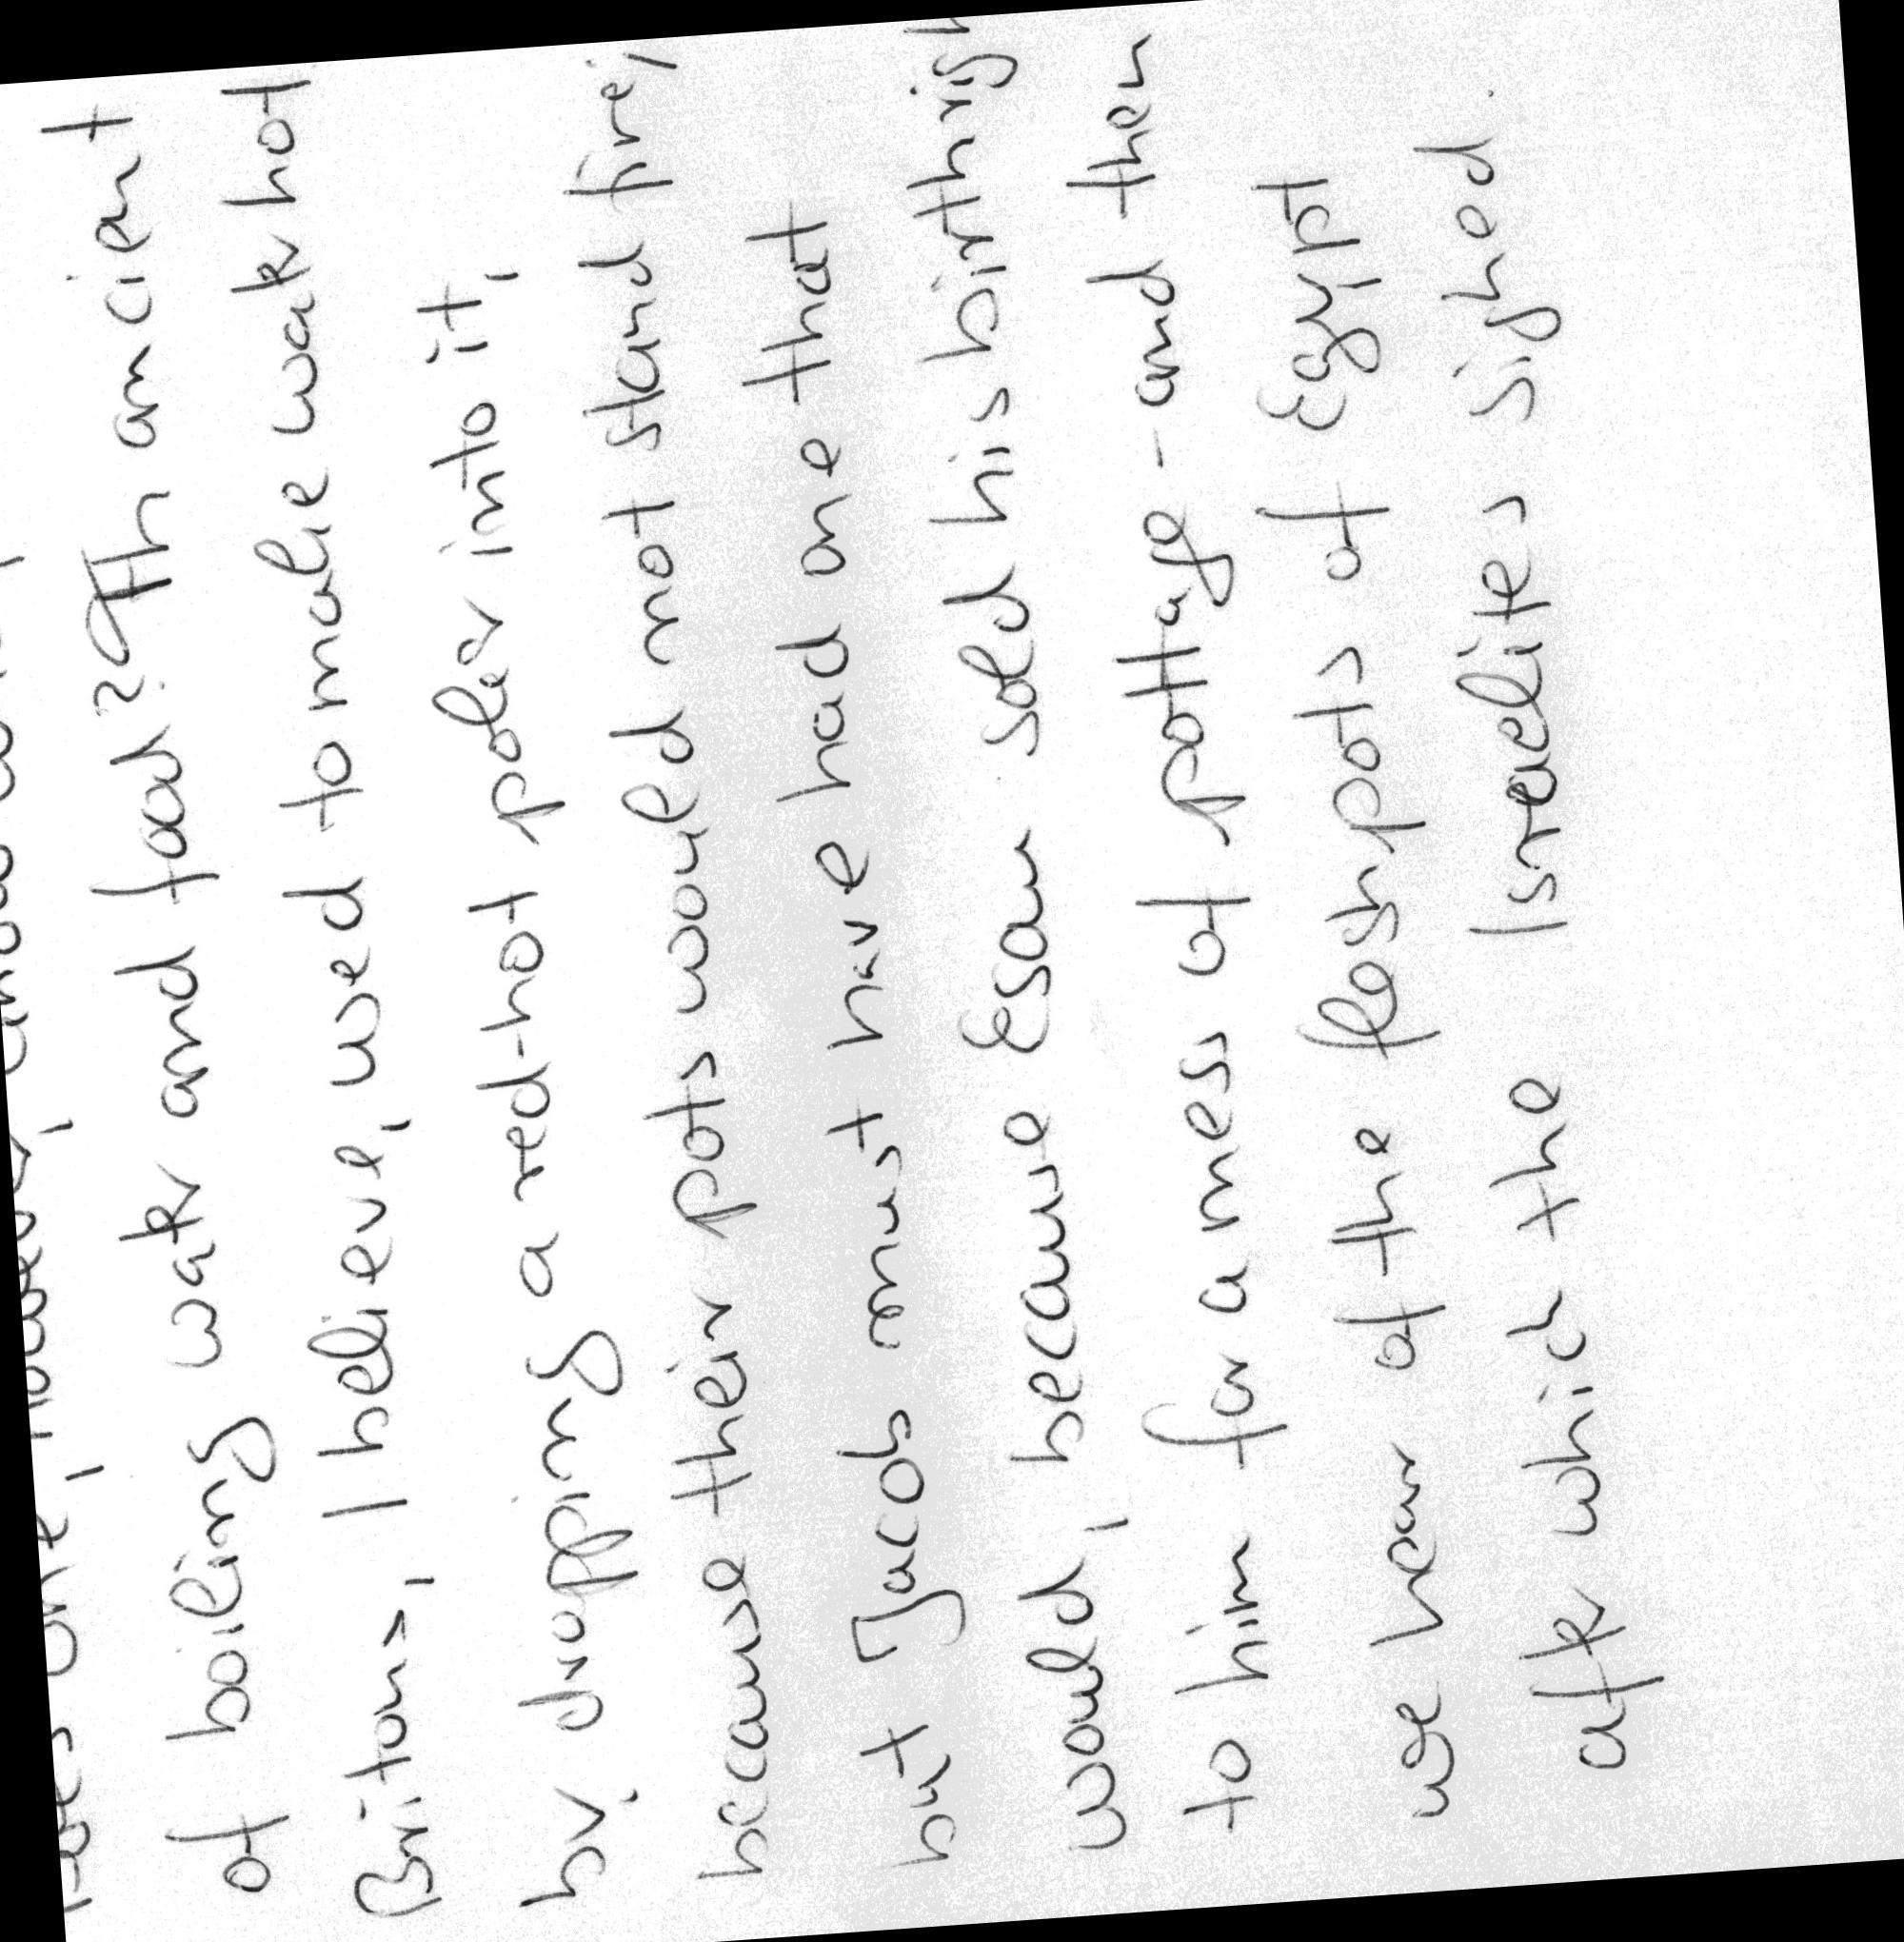 of boiling water and food? Th ancient
Britons, I believe, used to make water hot
by dropping a red-hot poker into it,
because their pots would not stand fire,
but Jacob must have had one that
would, because Esau sold his birthright
to him for a mess of pottage - and then
we hear of the fleshpots of Egypt
after which the Israelites sighed.